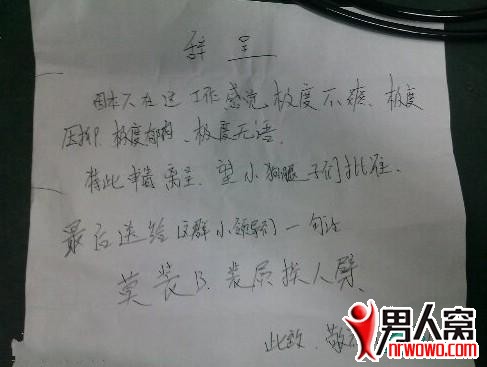 辞呈
因本人在这工作感觉极度不爽、极度
压抑、极度郁闷、极度无语.
特此申请离呈.望小狗腿子们批准.
最后送给这群小领导们一句话
莫装B.装屄挨人劈.
此致.敬
男人窝
nrwowo.com